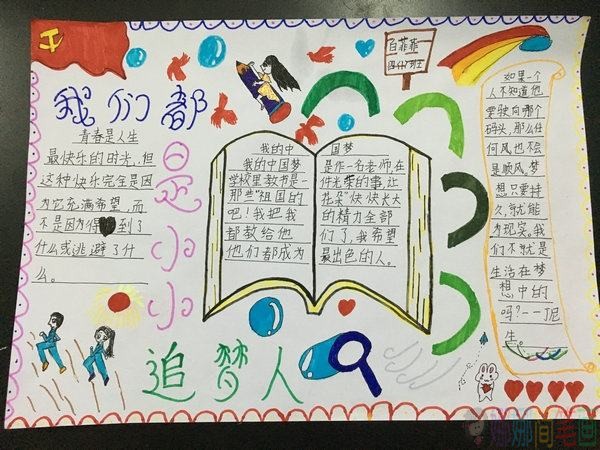 我们都
是小小
追梦人
百菲菲
四(廿)班
青春是人生
最快乐的时光,但
这种快乐完全是因
为它充满希望,而
不是因为得到了
什么或逃避了什
么。
我的中国梦
我的中国梦
学校里教书是一
那些"祖国的
吧!我把我
都教给他
他们都成为
是作一名老师,在
件光荣的事,让
花朵"快快长大
的精力全部
们了,我希望
最出色的人。
如果一个
人不知道他
要驶向哪个
码头,那么任
何风也不会
是顺风。梦
想只要持
久,就能
为现实。我
们不就是
生活在梦
想中的
吗?——丁尼
生。
娜娜简笔画